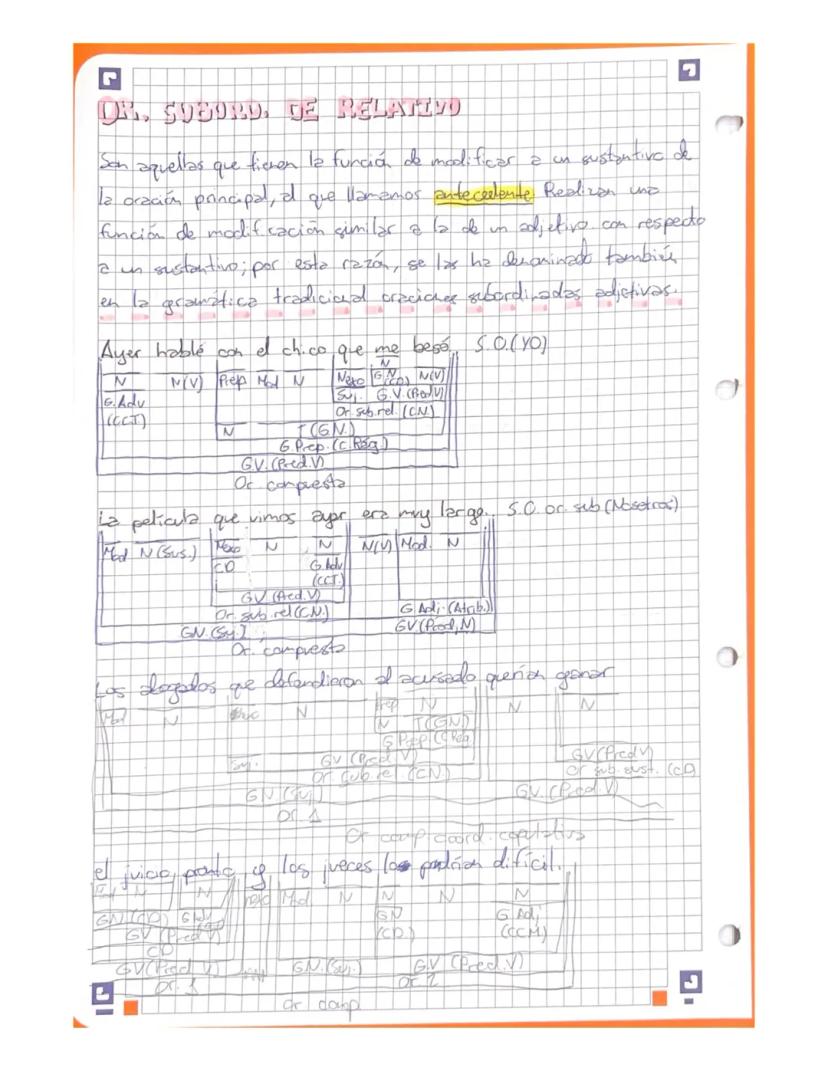 OR. SUBORD. DE RELATIVO
Son aquellas que tienen la función de modificar a un sustantivo de
la oración principal, al que llamamos antecedente. Realizan una
función de modificación similar a la de un adjetivo con respecto
a un sustantivo; por esta razón, se las ha denominado también
en la gramática tradicional oraciones subordinadas adjetivas.
Ayer hablé con el chico que me besó S.O.(YO)
N
N N(V) Prep Mod N Nexo G.N (CD) N(V)
G.Adv Suj. G.V.(Pred V)
(CCT) Or. sub. rel. (CN)
N T(GN)
G.Prep. (C.Rég.)
GV.(Pred.V)
Or compuesta
La película que vimos ayer era muy larga. S.O. or. sub (Nosotros)
Mod N(Sus.) Nexo N N N(V) Mod. N
CD G.Adv
(CCT.)
GV (Pred.V)
Or. sub. rel (CN.) G.Adj. (Atrib.)
GN.(Suj.) GV(Pred.N)
Or. compuesta
Los abogados que defendieron al acusado querían ganar
Mod N Nexo N Prep N N N
N T(GN)
G Prep (C Rég
Suj. GV (Pred V) GV(Pred V)
Or sub rel (CN) Or sub. sust. (CD)
GN (Suj) GV. (Pred.V)
Or 1
Or comp coord. copulativa
el juicio pronto y los jueces lo podrían difícil.
N N nexo Mod. N N N N
GN (CD) G Adv GN G Adj
GV (Pred V) (CD) (CCM)
CD
GV(Pred V) GN.(Suj.) G.V (Pred.V)
Or. 1 Or 2
Or comp